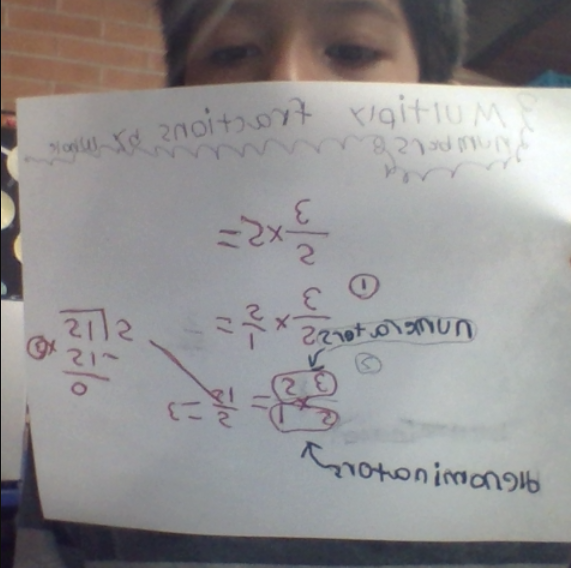 Multiply fractions by whole
numbers
3/2 × 2 =
① 3/2 × 2/1 =
numerators
②
3 2
2 × 1 = 12/2 = 3
denominators
2 12
- 12
0